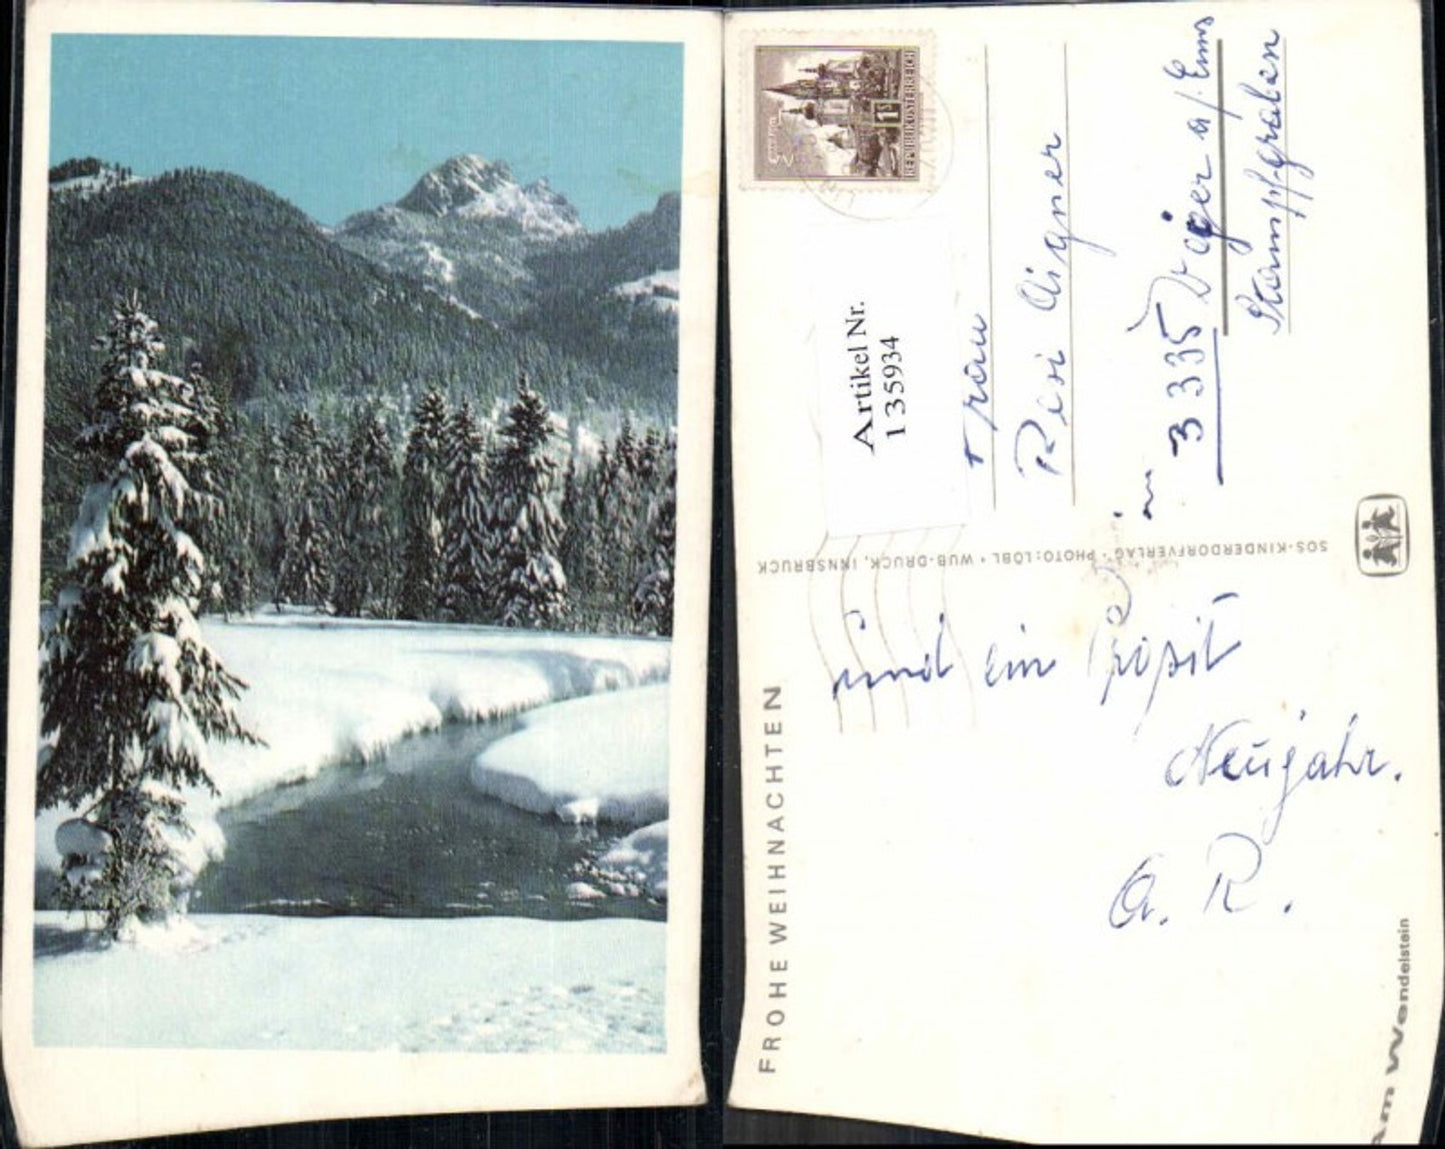 FROHE WEIHNACHTEN
und ein Prosit
Neujahr.
A. R.
Am Wendelstein
SOS-KINDERDORFVERLAG · PHOTO: LÖBL · WUB-DRUCK, INNSBRUCK
1S
REPUBLIK ÖSTERREICH
Artikel Nr.
135934
Frau
Resi Aigner
in
3335 Weyer a/. Enns
Stampfgraben